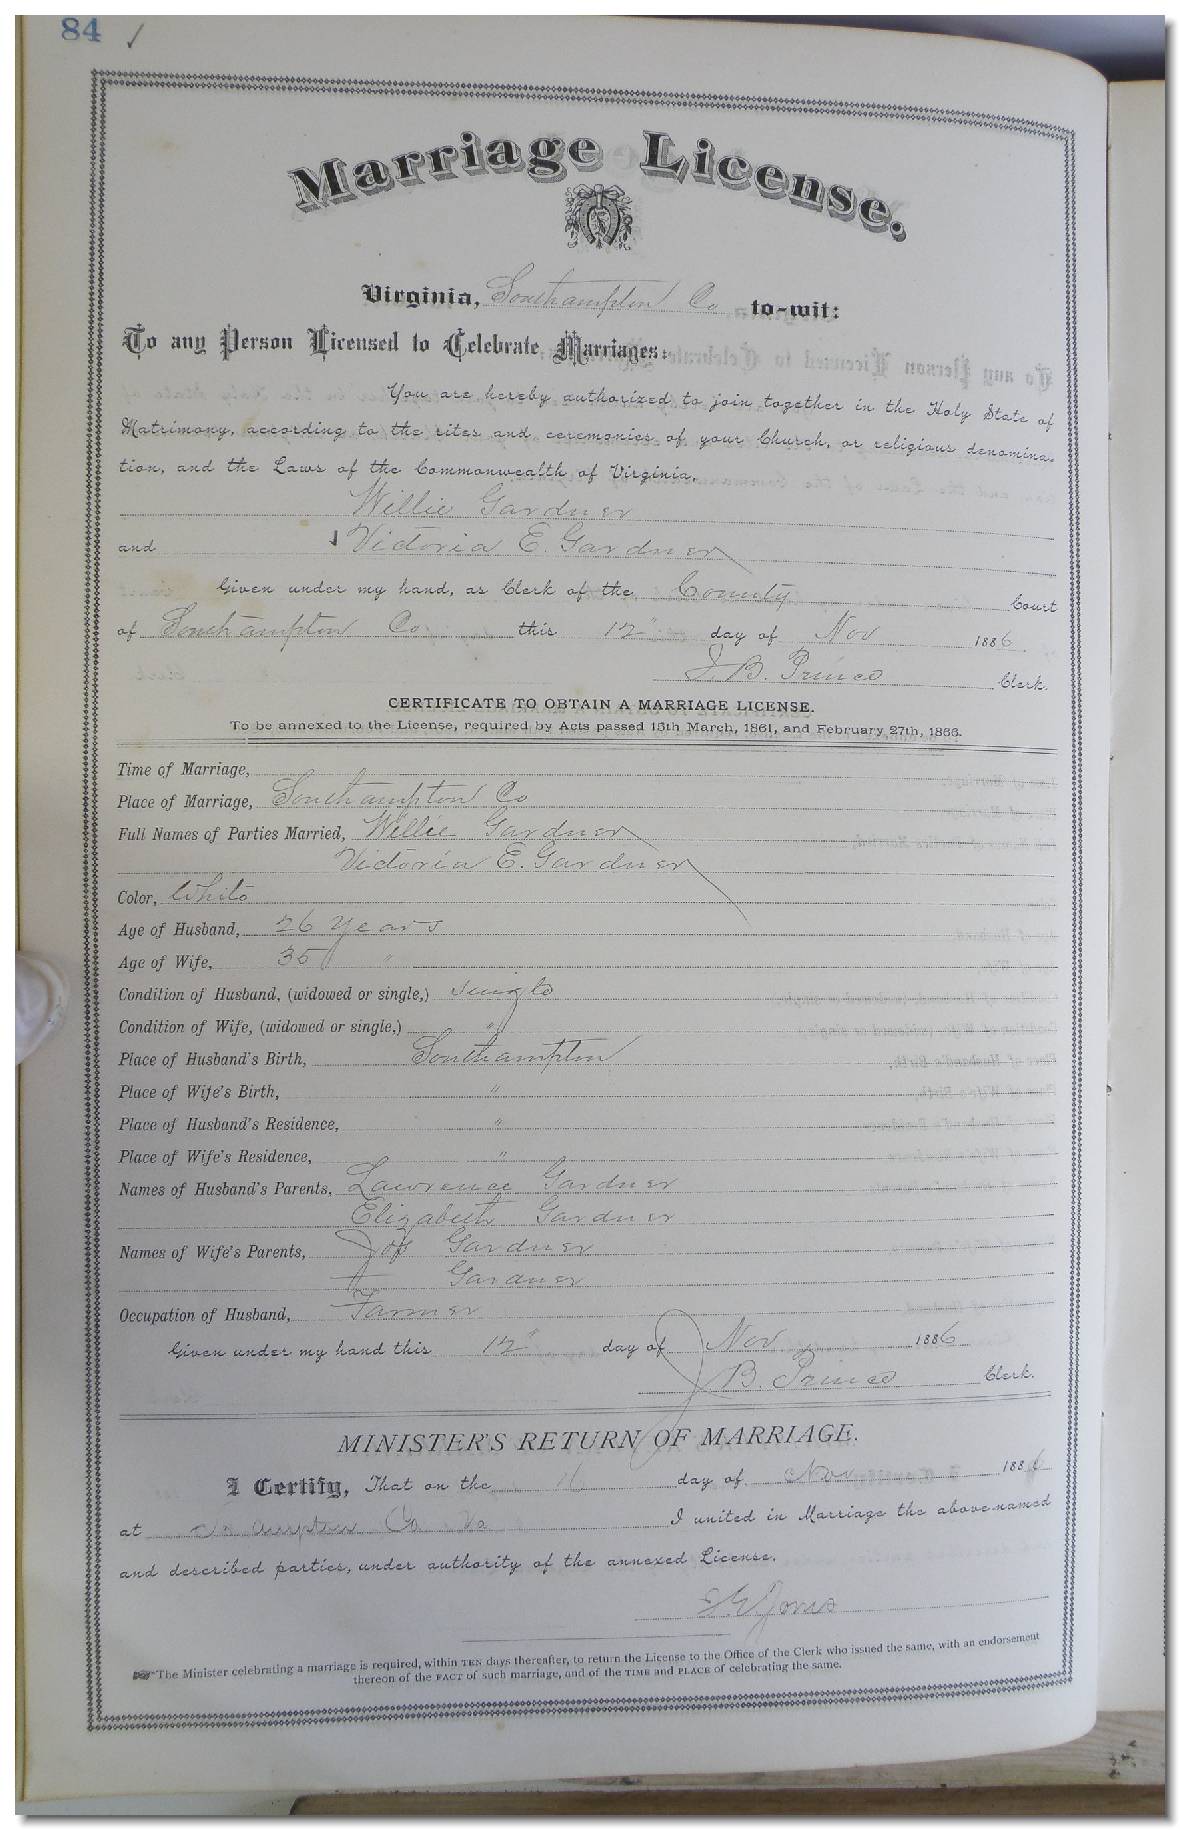 84 ✓
Marriage License.
Virginia, Southampton Co to-wit:
To any Person Licensed to Celebrate Marriages:
You are hereby authorized to join together in the Holy State of
Matrimony, according to the rites and ceremonies of your Church, or religious denomina-
tion, and the Laws of the Commonwealth of Virginia,
Willie Gardner
and Victoria E. Gardner
Given under my hand, as Clerk of the County Court
of Southampton Co this 12" day of Nov 1886
J. B. Prince Clerk.
CERTIFICATE TO OBTAIN A MARRIAGE LICENSE.
To be annexed to the License, required by Acts passed 15th March, 1861, and February 27th, 1866.
Time of Marriage,
Place of Marriage, Southampton Co
Full Names of Parties Married, Willie Gardner
Victoria E. Gardner
Color, White
Age of Husband, 26 Years
Age of Wife, 35 "
Condition of Husband, (widowed or single,) single
Condition of Wife, (widowed or single,) "
Place of Husband's Birth, Southampton
Place of Wife's Birth, "
Place of Husband's Residence, "
Place of Wife's Residence, "
Names of Husband's Parents, Lawrence Gardner
Elizabeth Gardner
Names of Wife's Parents, Gardner
Gardner
Occupation of Husband, Farmer
Given under my hand this 12" day of Nov 1886
J B. Prince Clerk.
MINISTER'S RETURN OF MARRIAGE.
I Certify, That on the 16 day of Nov 1886
at Co Va I united in Marriage the above-named
and described parties, under authority of the annexed License.
Jones
The Minister celebrating a marriage is required, within TEN days thereafter, to return the License to the Office of the Clerk who issued the same, with an endorsement
thereon of the FACT of such marriage, and of the TIME and PLACE of celebrating the same.